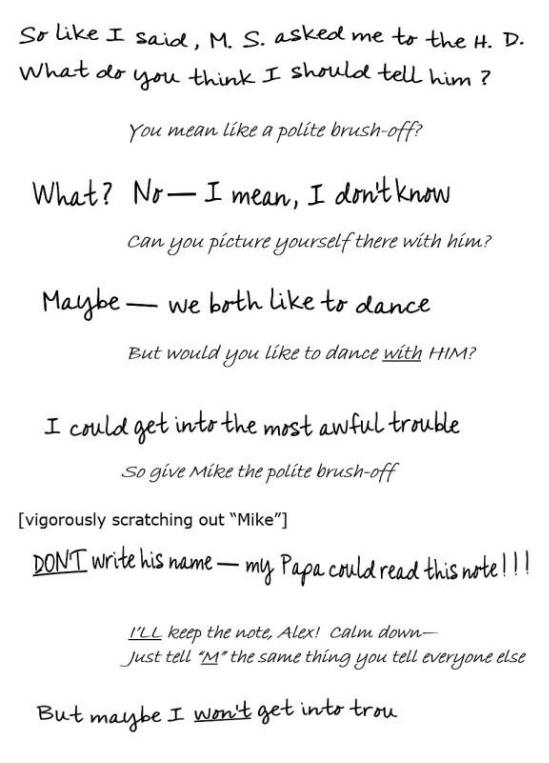 So like I said, M. S. asked me to the H. D.
What do you think I should tell him?
You mean like a polite brush-off?
What? No — I mean, I don't know
Can you picture yourself there with him?
Maybe — we both like to dance
But would you like to dance with HIM?
I could get into the most awful trouble
So give Mike the polite brush-off
[vigorously scratching out “Mike”]
DON'T write his name — my Papa could read this note!!!
I'LL keep the note, Alex! Calm down—
Just tell "M" the same thing you tell everyone else
But maybe I won't get into trou